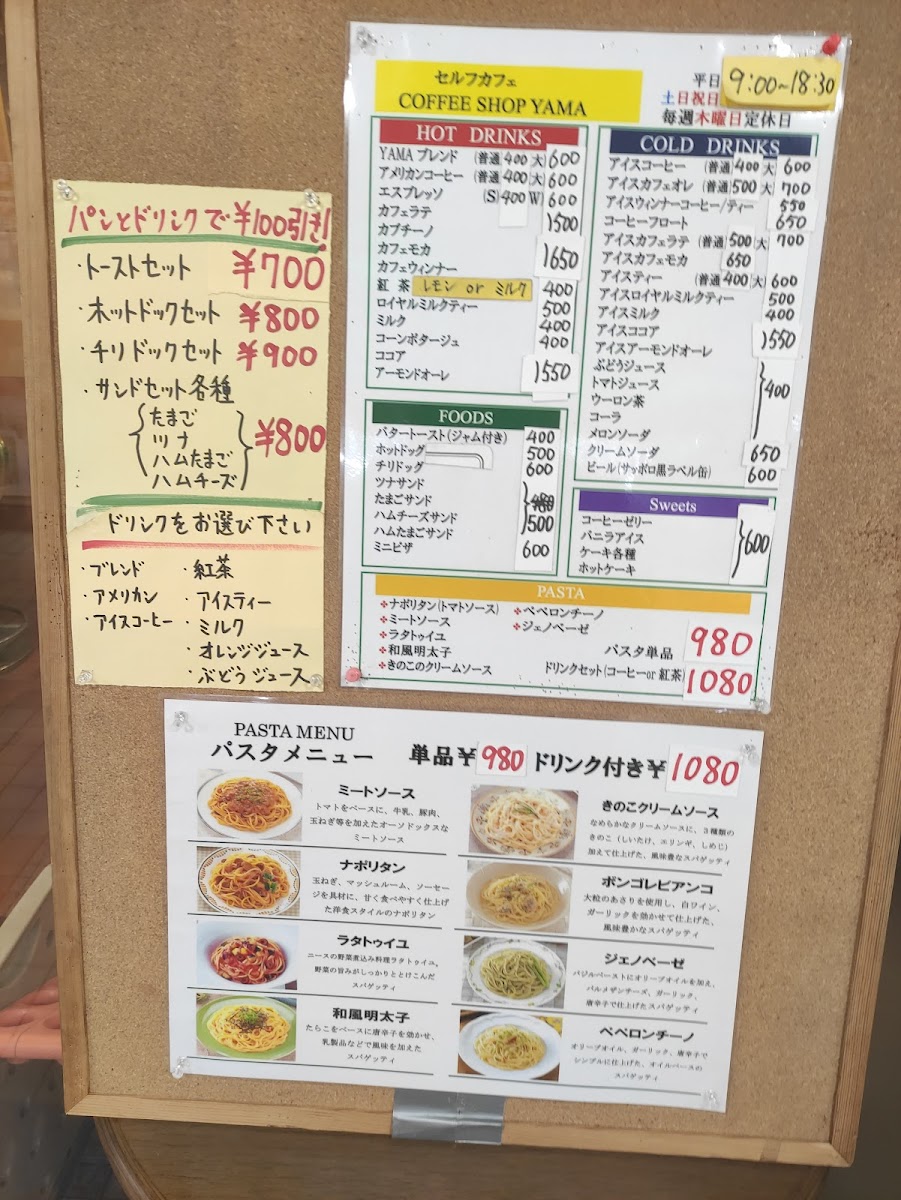 パンとドリンクで¥100引き!
・トーストセット ¥700
・ホットドックセット ¥800
・チリドックセット ¥900
・サンドセット各種
たまご
ツナ
ハムたまご
ハムチーズ
¥800
ドリンクをお選び下さい
・ブレンド
・アメリカン
・アイスコーヒー
・紅茶
・アイスティー
・ミルク
・オレンジジュース
・ぶどうジュース
セルフカフェ
COFFEE SHOP YAMA
平日 9:00~18:30
土日祝日
毎週木曜日定休日
HOT DRINKS
YAMA ブレンド (普通 400 大) 600
アメリカンコーヒー (普通 400 大) 600
エスプレッソ (S) 400 W) 600
カフェラテ
カプチーノ
500
カフェモカ
カフェウィンナー
650
紅 茶 レモン or ミルク 400
ロイヤルミルクティー 500
ミルク 400
コーンポタージュ 400
ココア
アーモンドオーレ
550
COLD DRINKS
アイスコーヒー (普通 400 大) 600
アイスカフェオレ (普通 500 大) 700
アイスウィンナーコーヒー/ティー 550
コーヒーフロート 650
アイスカフェラテ (普通 500 大) 700
アイスカフェモカ 650
アイスティー (普通 400 大) 600
アイスロイヤルミルクティー 500
アイスミルク 400
アイスココア
アイスアーモンドオーレ
550
ぶどうジュース
トマトジュース
ウーロン茶
コーラ
メロンソーダ
400
クリームソーダ 650
ビール(サッポロ黒ラベル缶) 600
FOODS
バタートースト(ジャム付き) 400
ホットドッグ 500
チリドッグ 600
ツナサンド
たまごサンド
ハムチーズサンド
ハムたまごサンド
500
ミニピザ 600
Sweets
コーヒーゼリー
バニラアイス
ケーキ各種
ホットケーキ
600
PASTA
ナポリタン(トマトソース)
ミートソース
ラタトゥイユ
和風明太子
きのこのクリームソース
ペペロンチーノ
ジェノベーゼ
パスタ単品 980
ドリンクセット(コーヒーor 紅茶) 1080
PASTA MENU
パスタメニュー 単品¥980 ドリンク付き¥1080
ミートソース
トマトをベースに、牛乳、豚肉、
玉ねぎ等を加えたオーソドックスな
ミートソース
ナポリタン
玉ねぎ、マッシュルーム、ソーセー
ジを具材に、甘く食べやすく仕上げ
た洋食スタイルのナポリタン
ラタトゥイユ
ニースの野菜煮込み料理ラタトゥイユ。
野菜の旨みがしっかりととけこんだ
スパゲッティ
和風明太子
たらこをベースに唐辛子を効かせ、
乳製品などで風味を加えた
スパゲッティ
きのこクリームソース
なめらかなクリームソースに、3種類の
きのこ(しいたけ、エリンギ、しめじ)
加えて仕上げた、風味豊なスパゲッティ
ボンゴレビアンコ
大粒のあさりを使用し、白ワイン、
ガーリックを効かせて仕上げた、
風味豊かなスパゲッティ
ジェノベーゼ
バジルペーストにオリーブオイルを加え、
パルメザンチーズ、ガーリック、
唐辛子で仕上げたスパゲッティ
ペペロンチーノ
オリーブオイル、ガーリック、唐辛子で
シンプルに仕上げた、オイルベースの
スパゲッティ